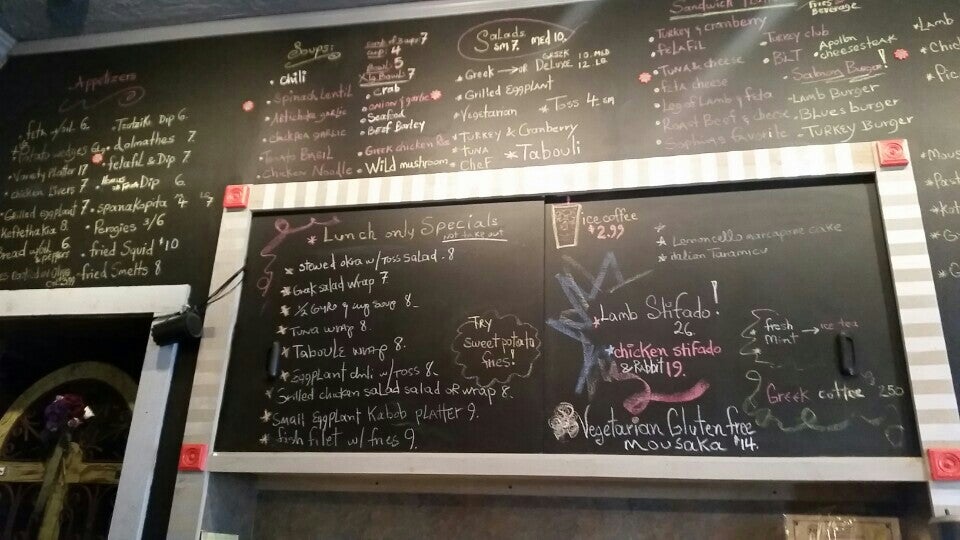 Appetizers
feta w/oil 6.
Potato wedges 6
Variety Platter 17
chicken livers 7
Grilled eggplant 7
Kefethakia 8.
Bread w/oil 6
Tzatziki Dip 6.
dolmathes 7.
felafil & Dip 7
Dip 6.
spanakopita 4
Perogies 3/6
fried Squid $10
fried Smelts 8
Soups:
chili
Spinach Lentil
Artichoke garlic
chickpea garlic
Tomato BASIL
Chicken Noodle
7
cup 4
Bowl 5
X-la Bowl 7
crab
onion & garlic
Seafood
BEEF Barley
GREEK chicken Rice
Wild mushroom
Salads
sm 7. med 10.
Greek → or DELUXE
GREEK 10. MED
12 LG
Grilled Eggplant
Vegetarian
Toss 4 sm
TURKEY & Cranberry
TUNA
CHEF
Tabouli
Sandwich
Fries &
Beverage
Turkey & cranberry
FELAFIL
TUNA & cheese
Feta cheese
Leg of Lamb & feta
Roast Beef & cheese
Sophia's favorite
Turkey club
BLT
Apollon
cheesesteak
Salmon Burger!
Lamb Burger
BLues burger
TURKEY Burger
Lamb
Lunch only Specials
not take out
Stewed okra w/Toss salad. 8
Greek salad wrap 7
1/2 Gyro & cup soup 8
Tuna wrap 8.
TABOULE wrap 8.
Eggplant chili w/toss 8
Grilled chicken salad salad or wrap 8.
Small Eggplant Kabob PLATTER 9.
fish filet w/ fries 9.
Try
sweet potato
fries!
ice coffee
$2.99
Lemoncello marcapone cake
Italian Tiramicu
Lamb Stifado!
26
chicken stifado
& Rabbit 19.
fresh
mint
→ ice tea
Greek coffee 2.50
Vegetarian Gluten free
MOUSAKA $14.